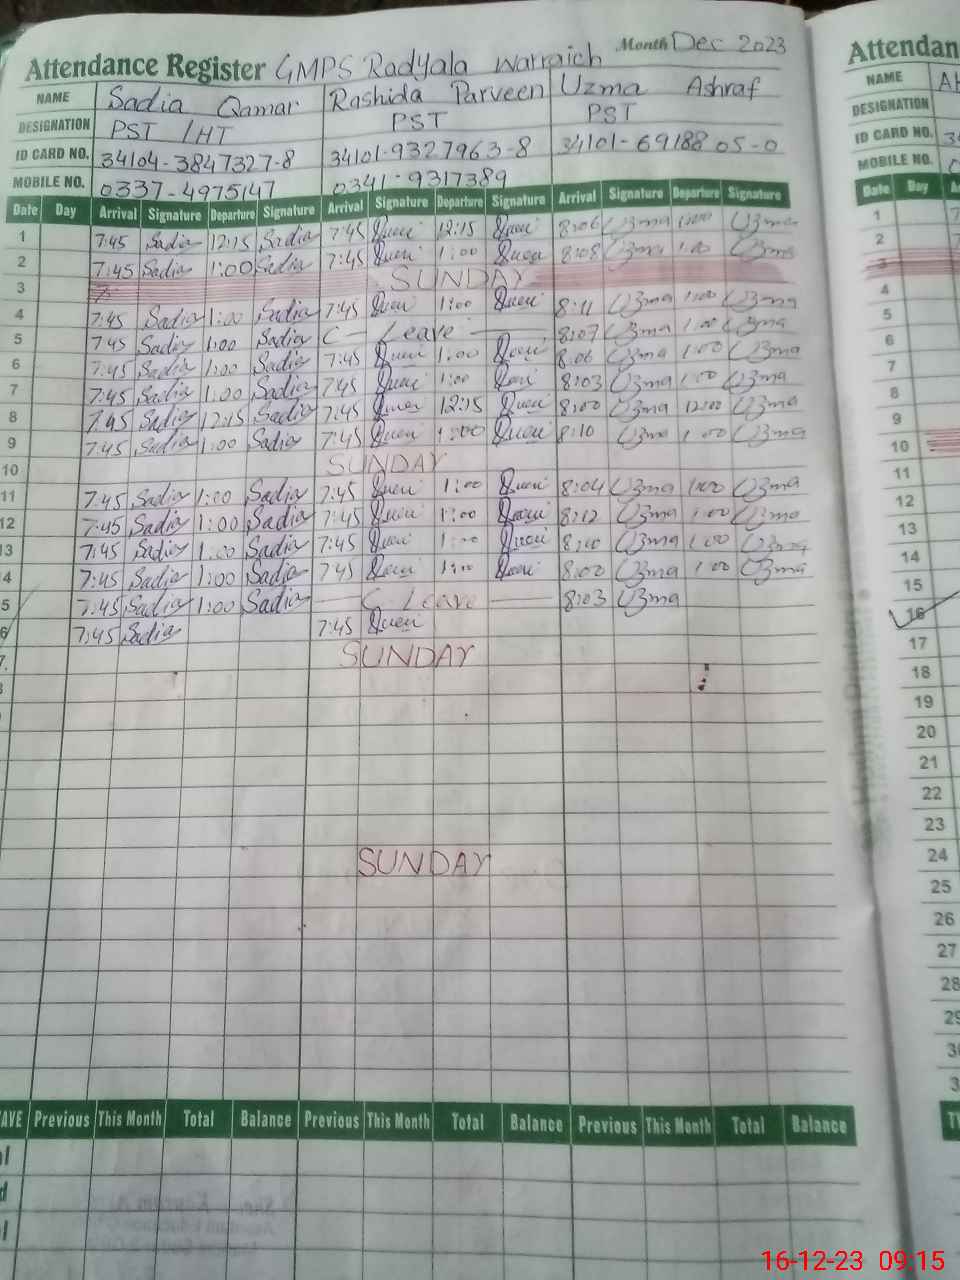 Attendance Register GMPS Radyala warraich Month Dec 2023
NAME Sadia Qamar Rashida Parveen Uzma Ashraf
DESIGNATION PST / HT PST PST
ID CARD NO. 34104-3847327-8 34101-9327963-8 34101-6918805-0
MOBILE NO. 0337-4975147 0341-9317389
Date Day Arrival Signature Departure Signature Arrival Signature Departure Signature Arrival Signature Departure Signature
1 7:45 Sadia 12:15 Sadia 7:45 12:15 8:06 Uzma 12:00 Uzma
2 7:45 Sadia 1:00 Sadia 7:45 1:00 8:08 Uzma 1:00 Uzma
3 SUNDAY
4 7:45 Sadia 1:00 Sadia 7:45 1:00 8:11 Uzma 1:00 Uzma
5 7:45 Sadia 1:00 Sadia C - Leave 8:07 Uzma 1:00 Uzma
6 7:45 Sadia 1:00 Sadia 7:45 1:00 8:06 Uzma 1:00 Uzma
7 7:45 Sadia 1:00 Sadia 7:45 1:00 8:03 Uzma 1:00 Uzma
8 7:45 Sadia 12:15 Sadia 7:45 12:15 8:00 Uzma 12:00 Uzma
9 7:45 Sadia 1:00 Sadia 7:45 1:00 8:10 Uzma 1:00 Uzma
10 SUNDAY
11 7:45 Sadia 1:00 Sadia 7:45 1:00 8:04 Uzma 1:00 Uzma
12 7:45 Sadia 1:00 Sadia 7:45 1:00 8:12 Uzma 1:00 Uzma
13 7:45 Sadia 1:00 Sadia 7:45 1:00 8:10 Uzma 1:00 Uzma
4 7:45 Sadia 1:00 Sadia 7:45 1:00 8:00 Uzma 1:00 Uzma
5 7:45 Sadia 1:00 Sadia C Leave 8:03 Uzma
6 7:45 Sadia 7:45
7. SUNDAY
SUNDAY
Previous This Month Total Balance Previous This Month Total Balance Previous This Month Total Balance
Attendan
NAME
DESIGNATION
ID CARD NO.
MOBILE NO.
Date Day
1
2
3
4
5
6
7
8
9
10
11
12
13
14
15
16
17
18
19
20
21
22
23
24
25
26
27
28
29
16-12-23 09:15